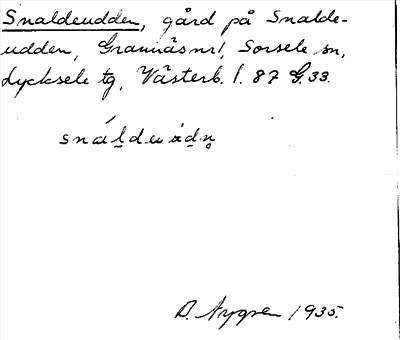 Snaldeudden, gård på Snalde-
udden, Grannäs nr 1, Sorsele sn,
Lycksele tg, Västerb. l. 87 G. 33.
snáldeɯdn̥
D. Nygren 1935.